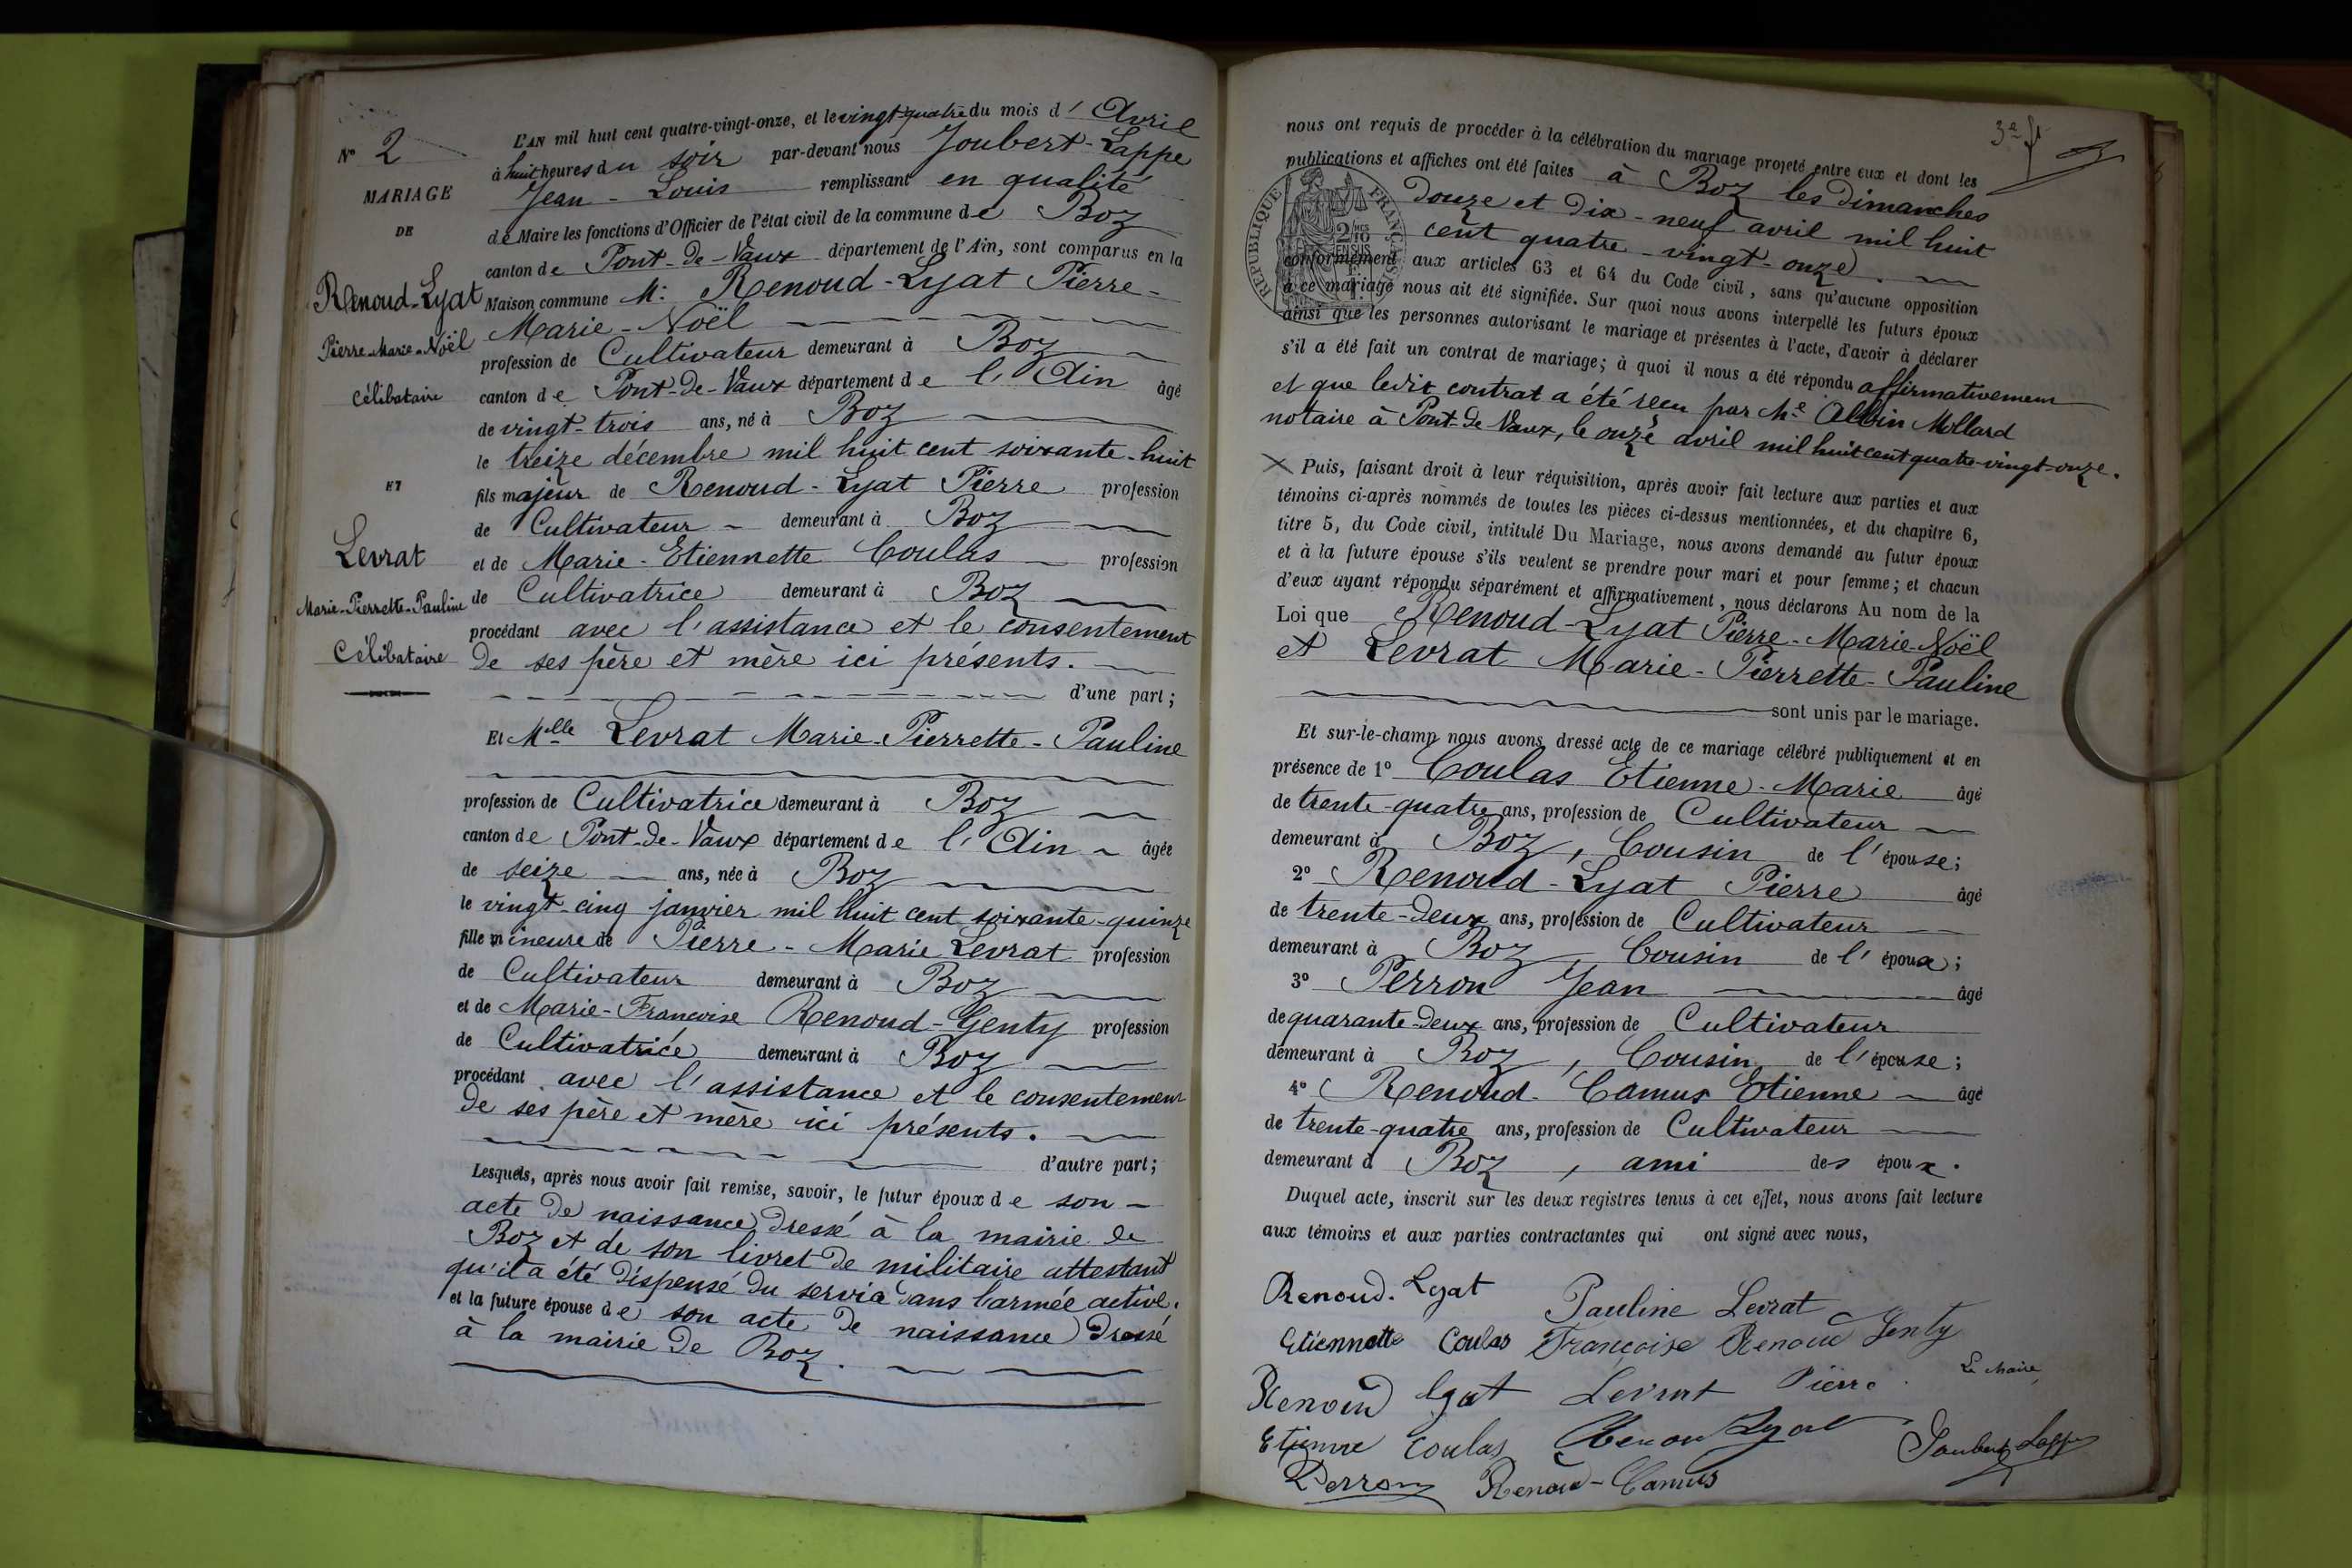 N° 2
MARIAGE
DE
Renoud-Lyat
Pierre-Marie-Noël
Célibataire
ET
Levrat
Marie-Pierrette-Pauline
Célibataire
L'AN mil huit cent quatre-vingt-onze, et le vingt-quatre du mois d' Avril
à huit heures du soir par-devant nous Joubert-Lappe
Jean-Louis remplissant en qualité
de Maire les fonctions d'Officier de l'état civil de la commune de Boz
canton de Pont-de-Vaux département de l'Ain, sont comparus en la
Maison commune M. Renoud-Lyat Pierre-
Marie-Noël
profession de Cultivateur demeurant à Boz
canton de Pont-de-Vaux département de l'Ain âgé
de vingt-trois ans, né à Boz
le treize décembre mil huit cent soixante-huit
fils majeur de Renoud-Lyat Pierre profession
de Cultivateur demeurant à Boz
et de Marie-Etiennette Coulas profession
de Cultivatrice demeurant à Boz
procédant avec l'assistance et le consentement
de ses père et mère ici présents.
d'une part;
Et Mlle Levrat Marie-Pierrette-Pauline
profession de Cultivatrice demeurant à Boz
canton de Pont-de-Vaux département de l'Ain âgée
de seize ans, née à Boz
le vingt-cinq janvier mil huit cent soixante-quinze
fille mineure de Pierre-Marie Levrat profession
de Cultivateur demeurant à Boz
et de Marie-Francoise Renoud-Genty profession
de Cultivatrice demeurant à Boz
procédant avec l'assistance et le consentement
de ses père et mère ici présents.
d'autre part;
Lesquels, après nous avoir fait remise, savoir, le futur époux de son
acte de naissance dressé à la mairie de
Boz et de son livret de militaire attestant
qu'il a été dispensé du service dans l'armée active.
et la future épouse de son acte de naissance dressé
à la mairie de Boz.
3e
nous ont requis de procéder à la célébration du mariage projeté entre eux et dont les
publications et affiches ont été faites à Boz les dimanches
douze et dix-neuf avril mil huit
cent quatre-vingt-onze.
RÉPUBLIQUE FRANÇAISE
2/10 EN SUS
conformément aux articles 63 et 64 du Code civil, sans qu'aucune opposition
à ce mariage nous ait été signifiée. Sur quoi nous avons interpellé les futurs époux
ainsi que les personnes autorisant le mariage et présentes à l'acte, d'avoir à déclarer
s'il a été fait un contrat de mariage; à quoi il nous a été répondu affirmativement
et que ledit contrat a été reçu par Me Albin Mollard
notaire à Pont-de-Vaux, le onze avril mil huit cent quatre-vingt-onze.
X Puis, faisant droit à leur réquisition, après avoir fait lecture aux parties et aux
témoins ci-après nommés de toutes les pièces ci-dessus mentionnées, et du chapitre 6,
titre 5, du Code civil, intitulé Du Mariage, nous avons demandé au futur époux
et à la future épouse s'ils veulent se prendre pour mari et pour femme; et chacun
d'eux ayant répondu séparément et affirmativement, nous déclarons Au nom de la
Loi que Renoud-Lyat Pierre-Marie-Noël
et Levrat Marie-Pierrette-Pauline
sont unis par le mariage.
Et sur-le-champ nous avons dressé acte de ce mariage célébré publiquement et en
présence de 1° Coulas Etienne-Marie âgé
de trente-quatre ans, profession de Cultivateur
demeurant à Boz, Cousin de l'épouse;
2° Renoud-Lyat Pierre âgé
de trente-deux ans, profession de Cultivateur
demeurant à Boz, Cousin de l'époux;
3° Perron Jean âgé
de quarante-deux ans, profession de Cultivateur
demeurant à Boz, Cousin de l'épouse;
4° Renoud-Camus Etienne âgé
de trente-quatre ans, profession de Cultivateur
demeurant à Boz, ami des époux.
Duquel acte, inscrit sur les deux registres tenus à cet effet, nous avons fait lecture
aux témoins et aux parties contractantes qui ont signé avec nous,
Renoud-Lyat Pauline Levrat
Etiennette Coulas Françoise Renoud Genty
Renoud Lyat Levrat Pierre Le Maire,
Etienne Coulas Renoud Lyat Joubert Lappe
Perron Renoud-Camus